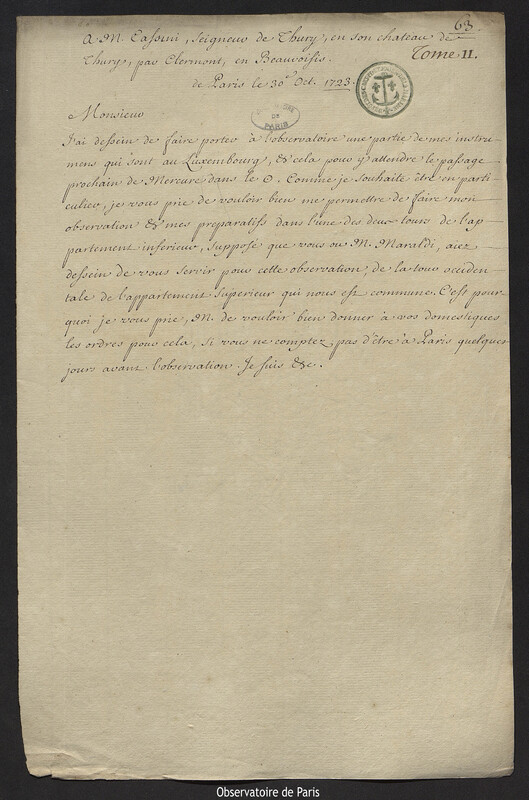 63.
A M. Cassini, Seigneur de Thury, en son chateau de
Thury, par Clermont, en Beauvoisis.
Tome II.
de Paris le 30.e Oct. 1723.
PARIS
Monsieur
J'ai dessein de faire porter à l'observatoire une partie de mes instru-
mens qui sont au Luxembourg, & cela pour y attendre le passage
prochain de Mercure dans le ☉. Comme je souhaite être en parti-
culier, je vous prie de vouloir bien me permettre de faire mon
observation & mes preparatifs dans l'une des deux tours de l'ap-
partement inferieur, supposé que vous ou M. Maraldi, aiez
dessein de vous servir pour cette observation, de la tour occiden-
tale de l'appartement superieur qui nous est commune. C'est pour-
quoi je vous prie, M. de vouloir bien donner à vos domestiques
les ordres pour cela, si vous ne comptez pas d'être à Paris quelques
jours avant l'observation. Je suis &c.
Observatoire de Paris